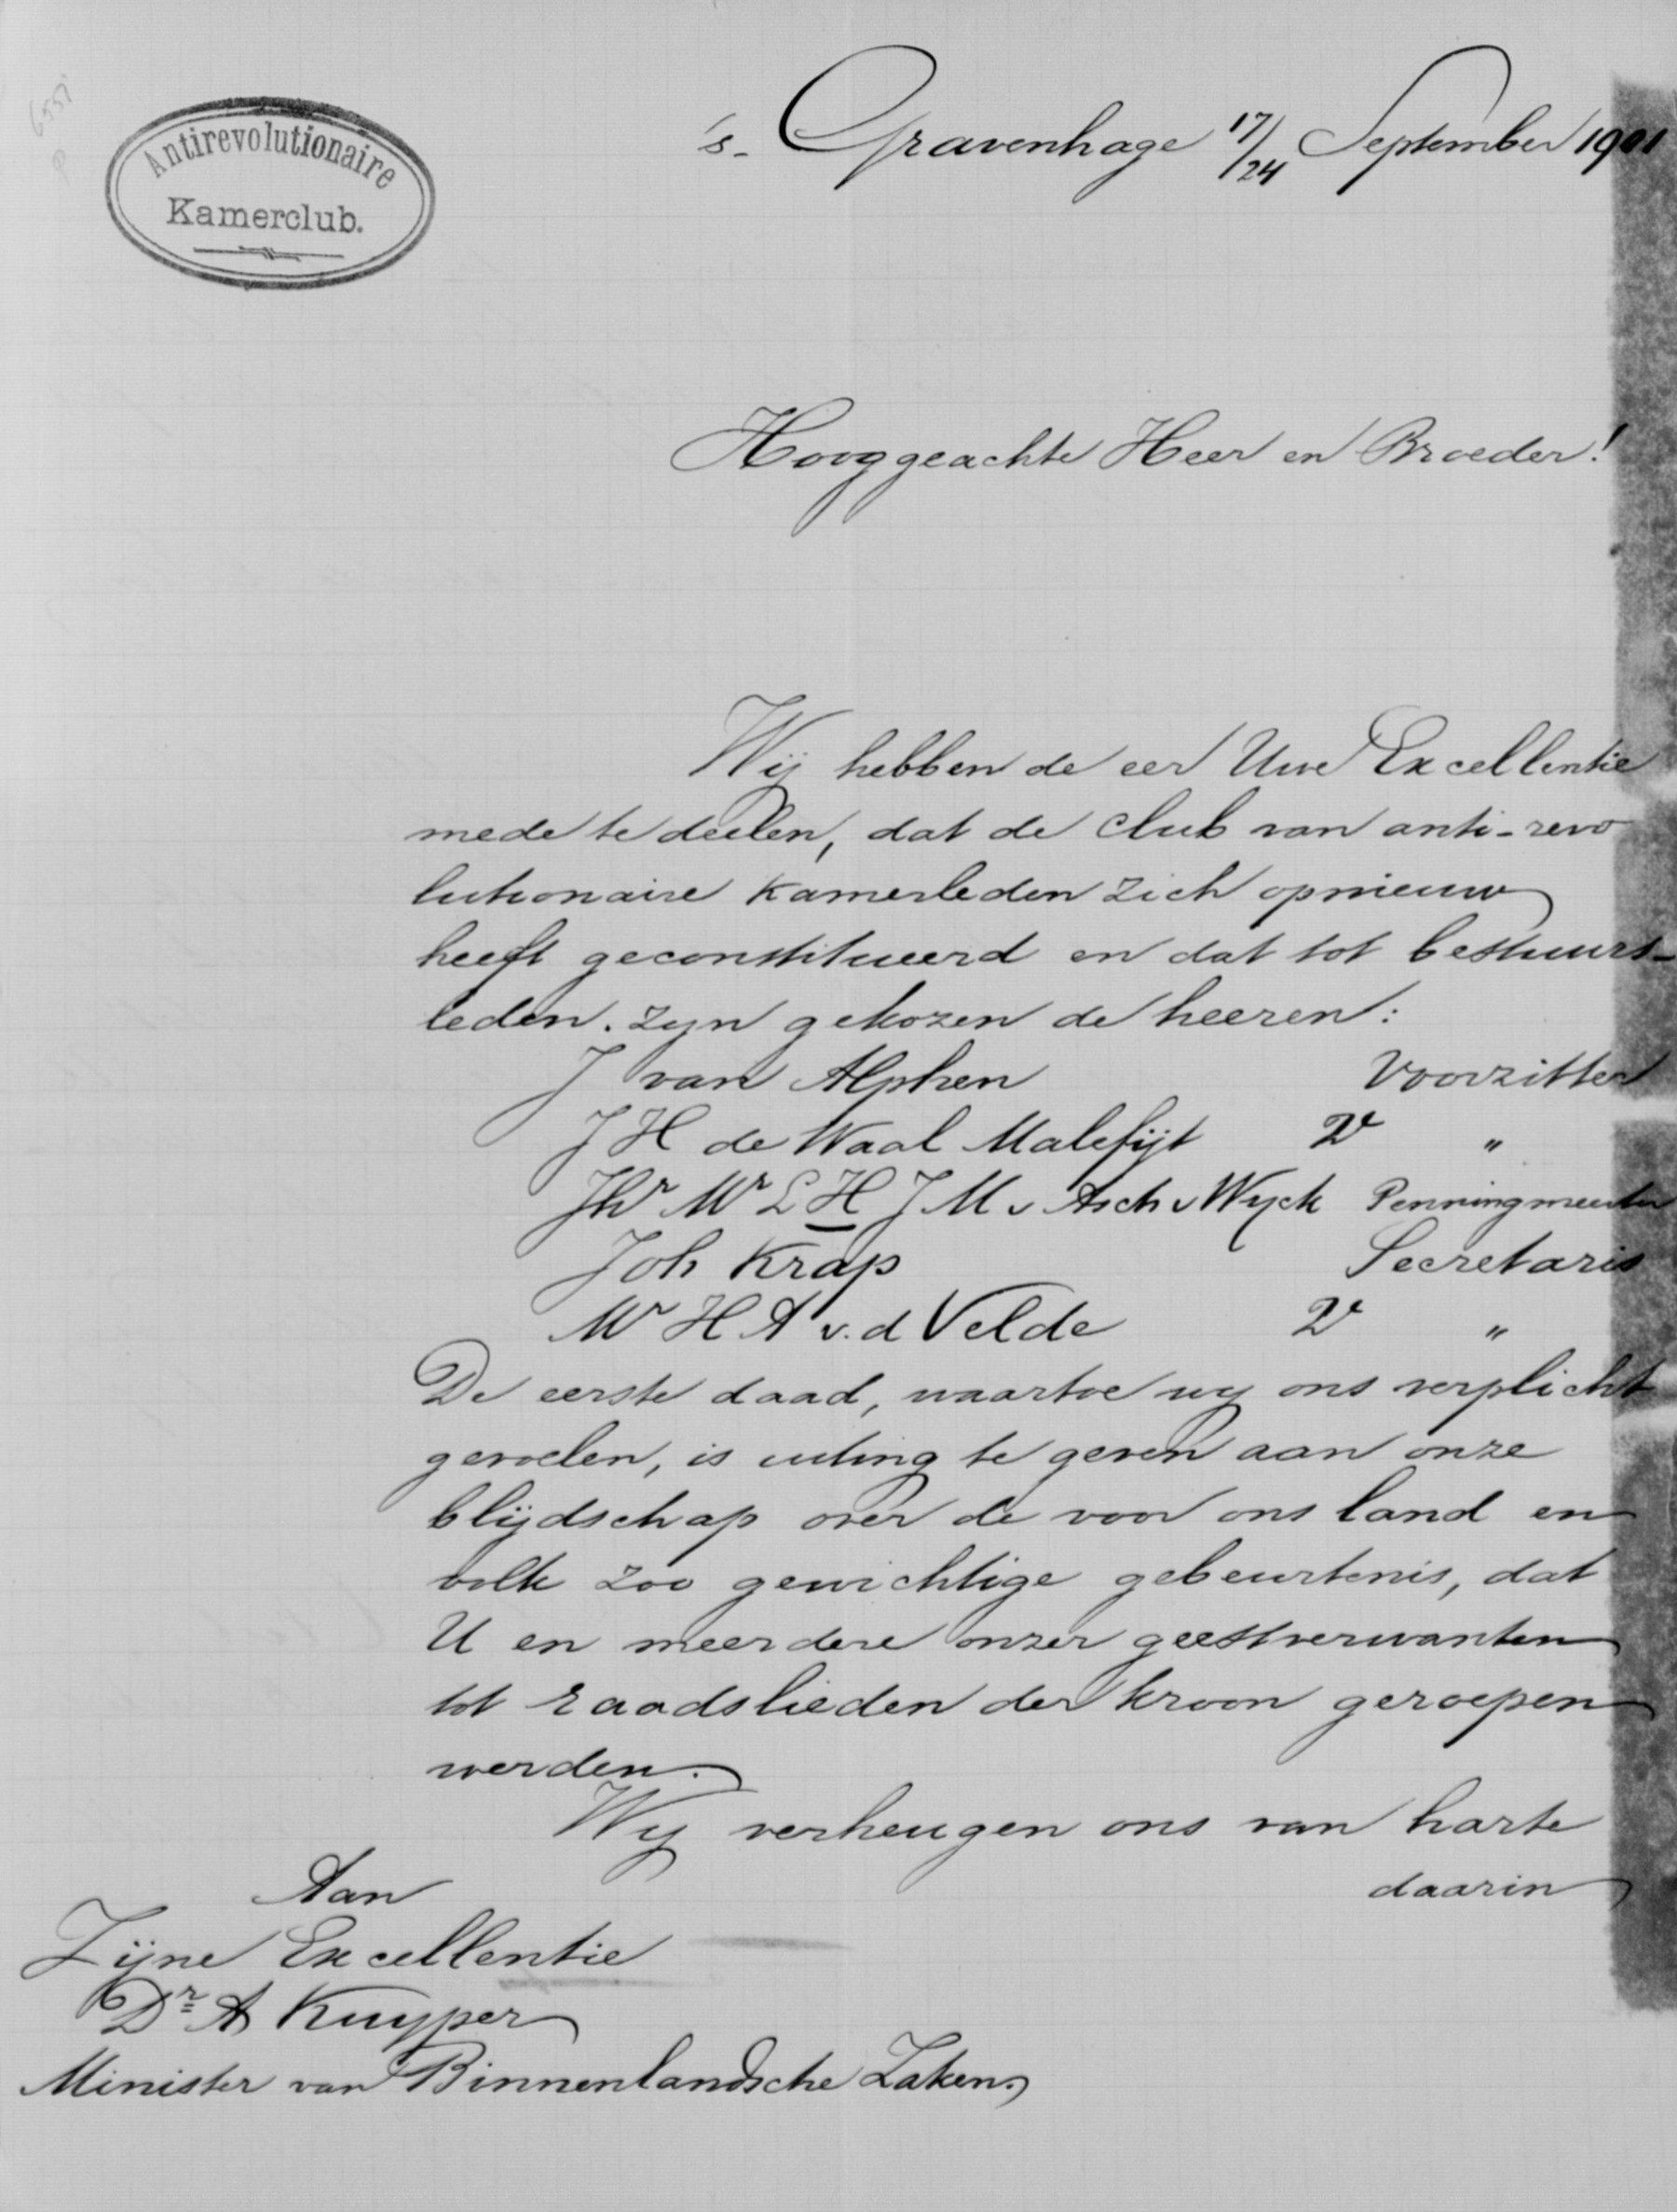 6551
Antirevolutionaire
Kamerclub.
's-Gravenhage 17/24 September 1901
Hooggeachte Heer en Broeder!
Wij hebben de eer Uwe Excellentie
mede te deelen, dat de club van anti-revo
lutionaire Kamerleden zich opnieuw
heeft geconstitueerd en dat tot bestuurs-
leden. zyn gekozen de heeren:
J van Alphen Voorzitter
J H de Waal Malefijt 2e "
Jhr Mr L H J M v Asch v Wyck Penningmeester
Joh Krap Secretaris
Mr H A v. d Velde 2e "
De eerste daad, waartoe wy ons verplicht
gevoelen, is uiting te geven aan onze
blijdschap over de voor ons land en
volk zoo gewichtige gebeurtenis, dat
U en meerdere onzer geestverwanten
tot raadslieden der kroon geroepen
werden.
Wy verheugen ons van harte
daarin
Aan
Zijne Excellentie
Dr A Kuyper
Minister van Binnenlandsche Zaken.